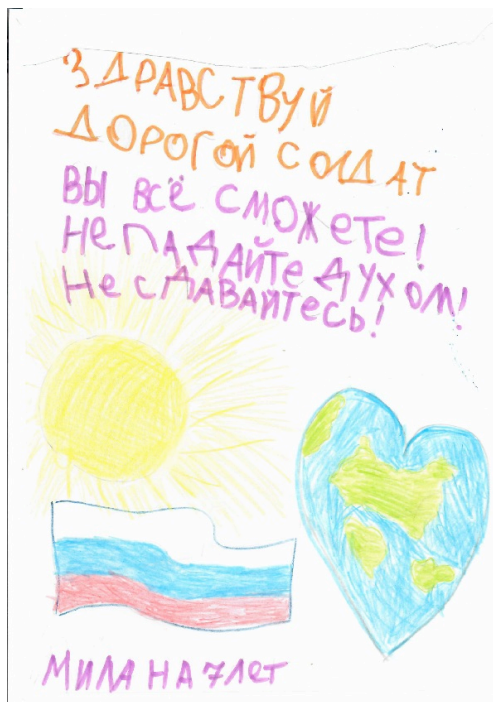 ЗДРАВСТВУЙ
ДОРОГОЙ СОЛДАТ
ВЫ ВСЁ СМОЖЕТЕ!
НЕ ПАДАЙТЕ ДУХОМ!
НЕ СДАВАЙТЕСЬ!
МИЛАНА 7 ЛЕТ